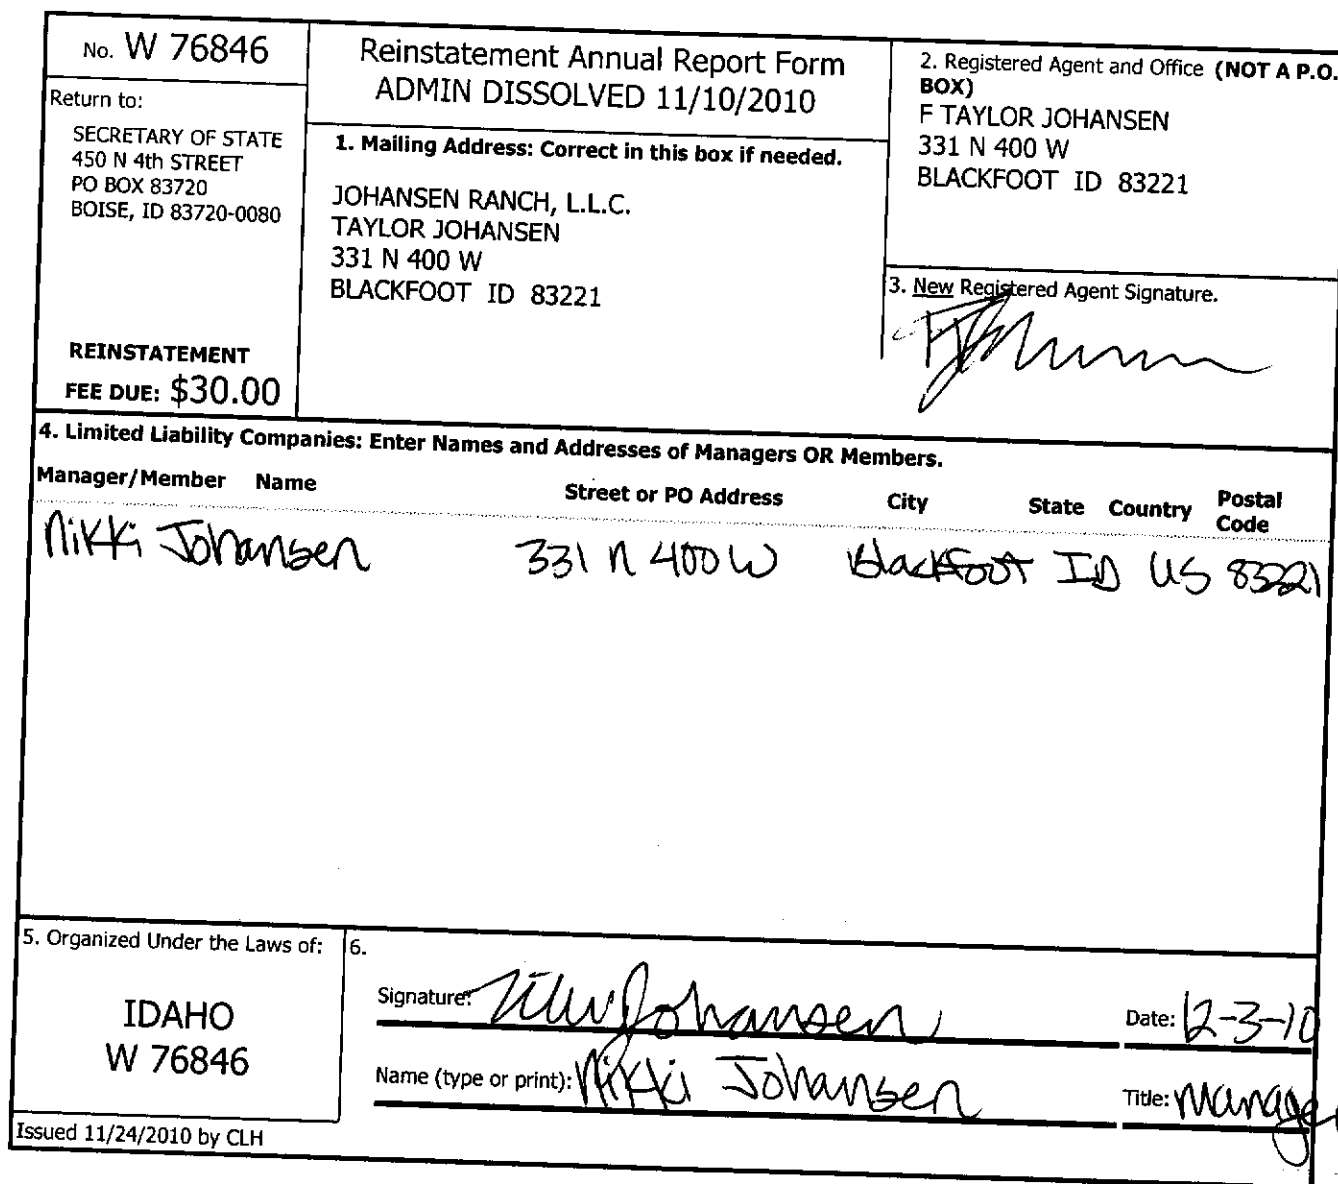 No. W 76846
Return to:
SECRETARY OF STATE
450 N 4th STREET
PO BOX 83720
BOISE, ID 83720-0080
REINSTATEMENT
FEE DUE: $30.00
Reinstatement Annual Report Form
ADMIN DISSOLVED 11/10/2010
1. Mailing Address: Correct in this box if needed.
JOHANSEN RANCH, L.L.C.
TAYLOR JOHANSEN
331 N 400 W
BLACKFOOT ID 83221
2. Registered Agent and Office (NOT A P.O.
BOX)
F TAYLOR JOHANSEN
331 N 400 W
BLACKFOOT ID 83221
3. New Registered Agent Signature.
4. Limited Liability Companies: Enter Names and Addresses of Managers OR Members.
Manager/Member Name Street or PO Address City State Country Postal Code
Nikki Johansen 331 N 400 W Blackfoot ID US 83221
5. Organized Under the Laws of:
IDAHO
W 76846
Issued 11/24/2010 by CLH
6.
Signature: Nikki Johansen Date: 12-3-10
Name (type or print): Nikki Johansen Title: Manager